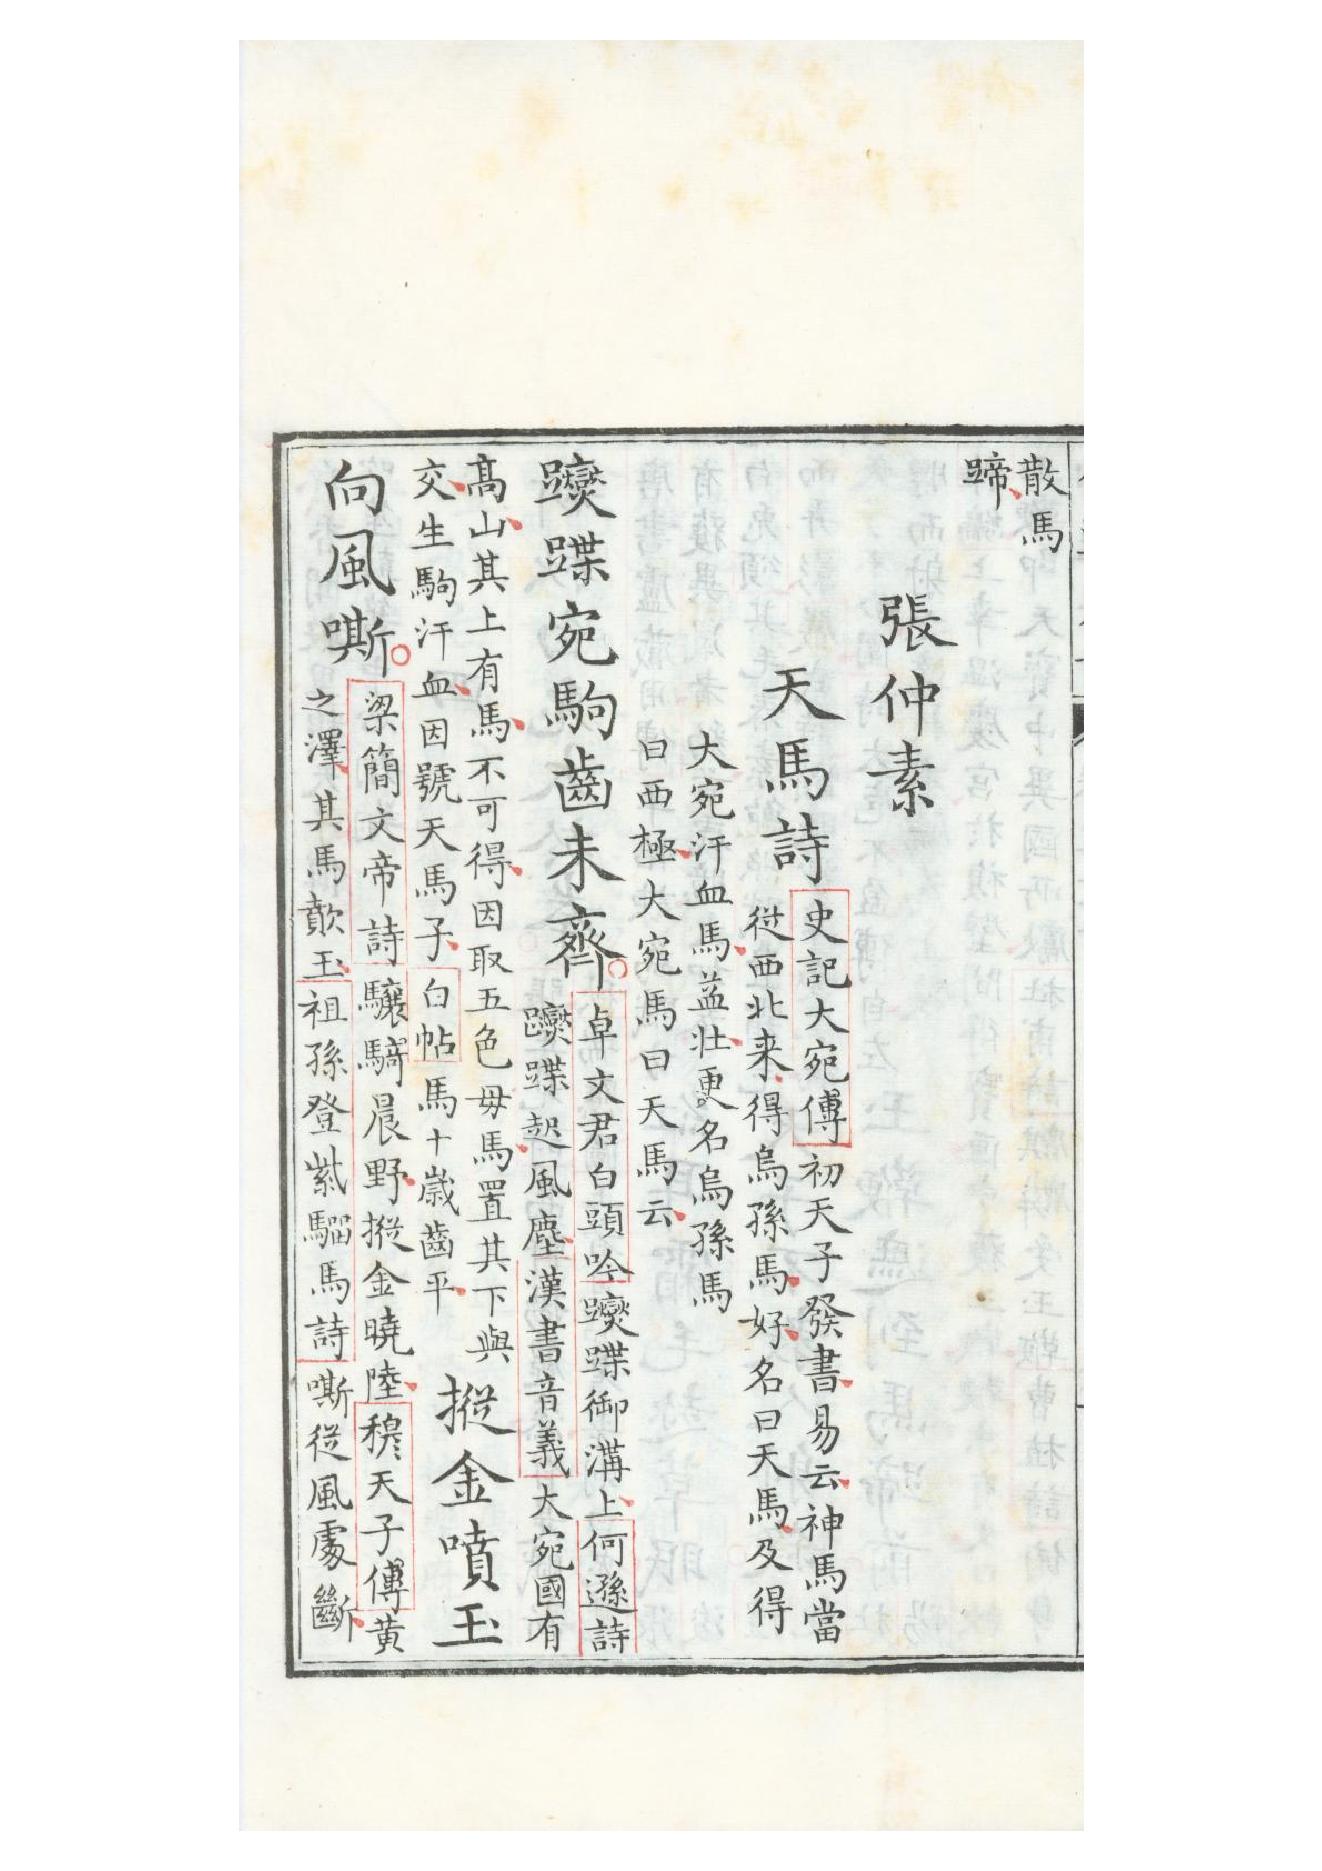 散馬
蹄
張仲素
天馬詩
史記大宛傳初天子發書易云神馬當
從西北来得烏孫馬好名曰天馬及得
大宛汗血馬益壯更名烏孫馬
曰西極大宛馬曰天馬云
躞蹀宛駒齒未齊
卓文君白頭吟躞蹀御溝上何遜詩
躞蹀起風塵漢書音義大宛國有
髙山其上有馬不可得因取五色毋馬置其下與
交生駒汗血因號天馬子白帖馬十歲齒平
摐金噴玉
向風嘶
梁簡文帝詩驤騎晨野摐金曉陸穆天子傳黄
之澤其馬歕玉祖孫登紫騮馬詩嘶從風處斷